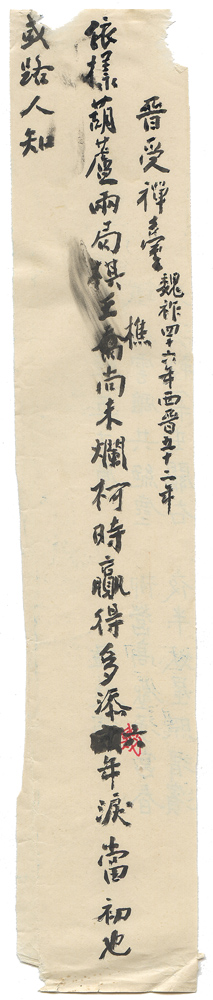 晉受禪臺 魏祚四十六年西晉五十二年
樵
依樣葫蘆兩局棋王喬尚未爛柯時贏得多添幾年淚當初也
或路人知